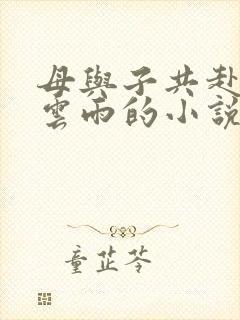 母與子共赴
雲雨的小說
童芷苓